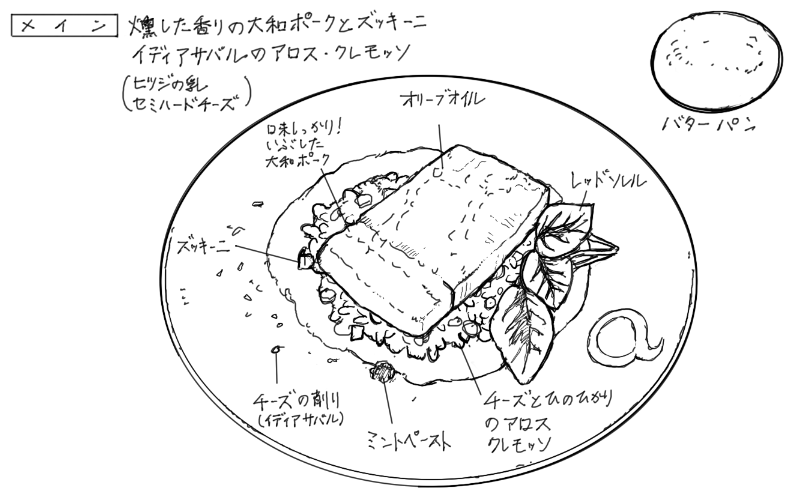 メイン
燻した香りの大和ポークとズッキーニ
イディアサバルのアロス・クレモッソ
(ヒツジの乳
セミハードチーズ)
バターパン
オリーブオイル
口味しっかり!
いぶした
大和ポーク
レッドソレル
ズッキーニ
チーズの削り
(イディアサバル)
ミントペースト
チーズとひのひかり
のアロス
クレモッソ